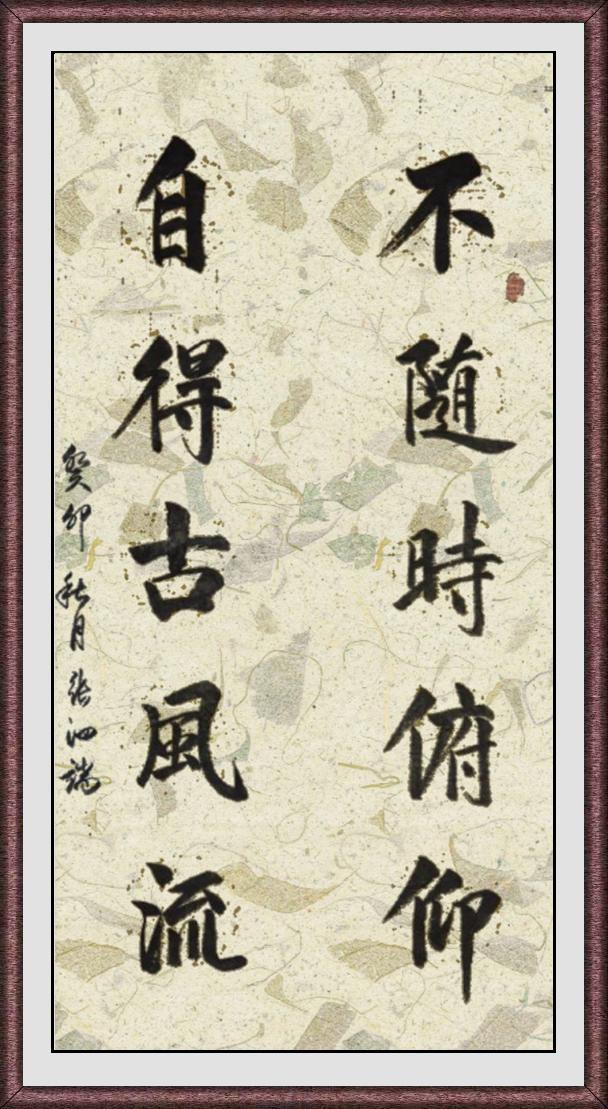 不隨時俯仰
自得古風流
癸卯秋月張泗端